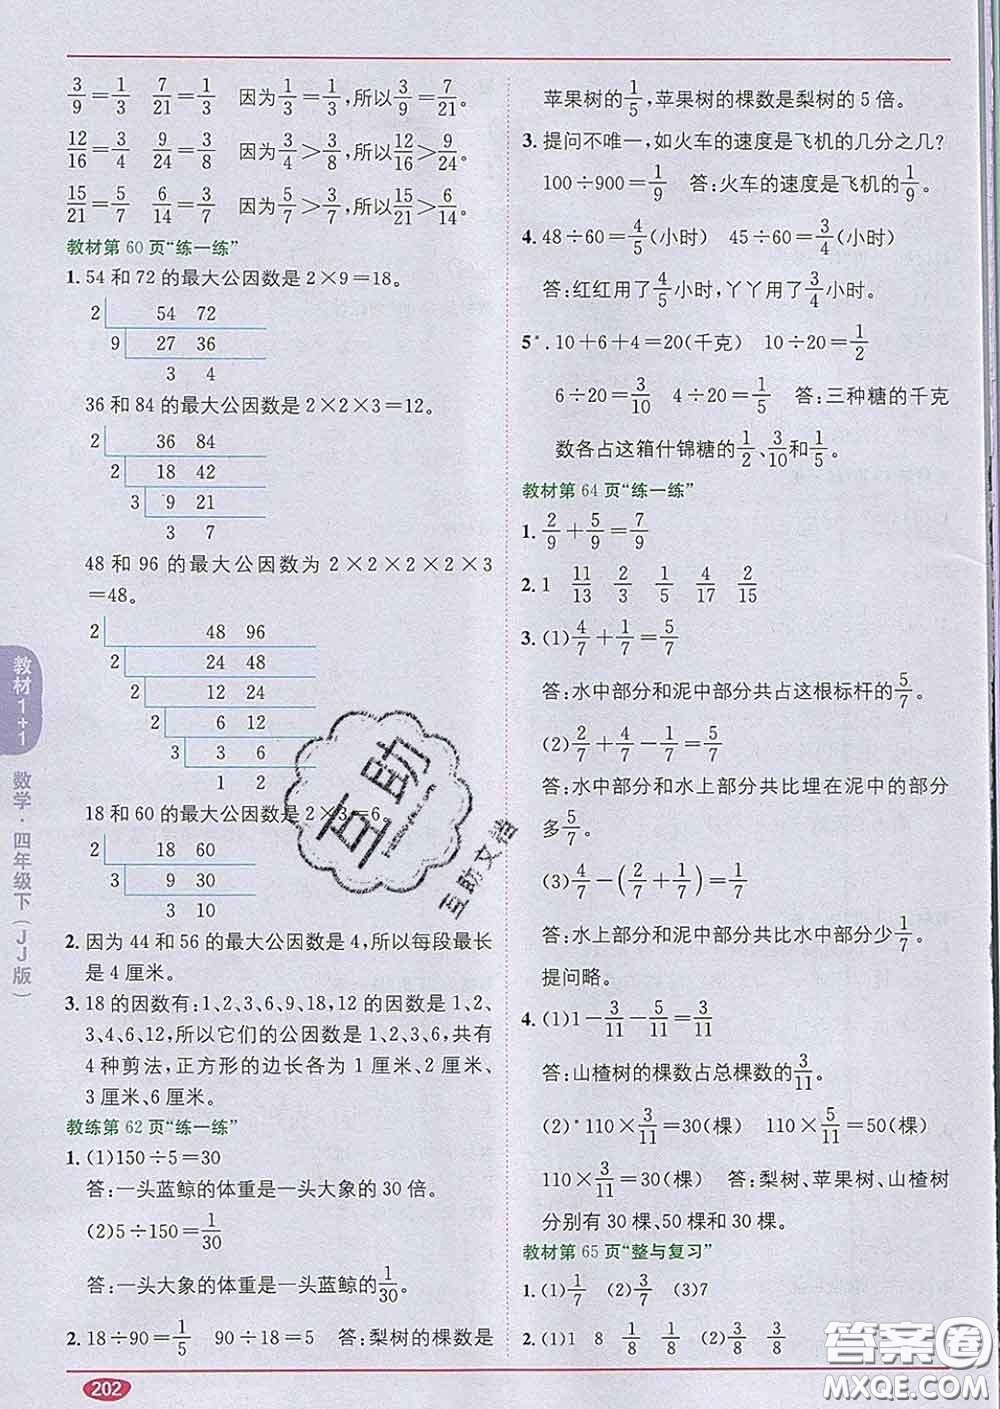 3/9=1/3 7/21=1/3 因为1/3=1/3,所以3/9=7/21。
12/16=3/4 9/24=3/8 因为3/4>3/8,所以12/16>9/24。
15/21=5/7 6/14=3/7 因为5/7>3/7,所以15/21>6/14。
教材第60页“练一练”
1. 54和72的最大公因数是2×9=18。
2 54 72
9 27 36
3 4
36和84的最大公因数是2×2×3=12。
2 36 84
2 18 42
3 9 21
3 7
48和96的最大公因数为2×2×2×2×3
=48。
2 48 96
2 24 48
2 12 24
2 6 12
3 3 6
1 2
18和60的最大公因数是2×3=6。
2 18 60
3 9 30
3 10
2. 因为44和56的最大公因数是4,所以每段最长
是4厘米。
3. 18的因数有:1、2、3、6、9、18,12的因数是1、2、
3、4、6、12,所以它们的公因数是1、2、3、6,共有
4种剪法,正方形的边长各为1厘米、2厘米、
3厘米、6厘米。
教练第62页“练一练”
1. (1)150÷5=30
答:一头蓝鲸的体重是一头大象的30倍。
(2)5÷150=1/30
答:一头大象的体重是一头蓝鲸的1/30。
2. 18÷90=1/5 90÷18=5 答:梨树的棵数是
苹果树的1/5,苹果树的棵数是梨树的5倍。
3. 提问不唯一,如火车的速度是飞机的几分之几?
100÷900=1/9 答:火车的速度是飞机的1/9。
4. 48÷60=4/5(小时) 45÷60=3/4(小时)
答:红红用了4/5小时,丫丫用了3/4小时。
5*. 10+6+4=20(千克) 10÷20=1/2
6÷20=3/10 4÷20=1/5 答:三种糖的千克
数各占这箱什锦糖的1/2、3/10和1/5。
教材第64页“练一练”
1. 2/9+5/9=7/9
2. 1 11/13 2/3 1/5 4/17 2/15
3. (1)4/7+1/7=5/7
答:水中部分和泥中部分共占这根标杆的5/7。
(2)2/7+4/7-1/7=5/7
答:水中部分和水上部分共比埋在泥中的部分
多5/7。
(3)4/7-(2/7+1/7)=1/7
答:水上部分和泥中部分共比水中部分少1/7。
提问略。
4. (1)1-3/11-5/11=3/11
答:山楂树的棵数占总棵数的3/11。
(2)*110×3/11=30(棵) 110×5/11=50(棵)
110×3/11=30(棵) 答:梨树、苹果树、山楂树
分别有30棵、50棵和30棵。
教材第65页“整与复习”
1. (1)1/7 (2)3/7 (3)7
2. (1)1 8 1/8 1/8 (2)3/8 3/8
教材1+1 数学·四年级下(JJ版)
202
互助
互助文档
答案圈
MXQE.COM